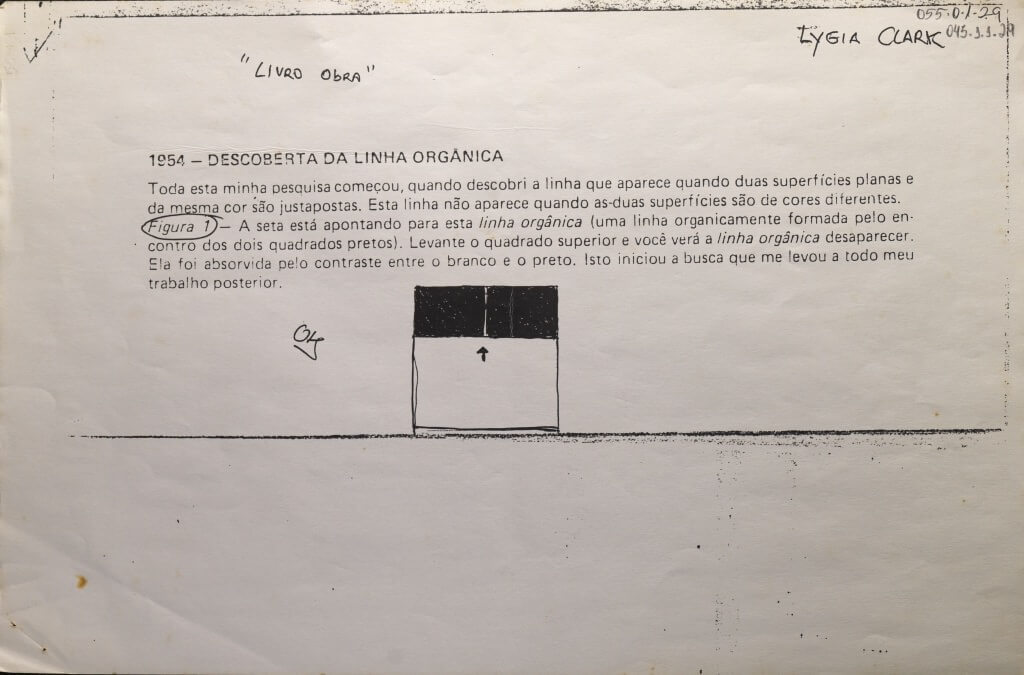 055.0.1-29
LYGIA CLARK
045.1.1.29
"LIVRO ObRA"
1954 – DESCOBERTA DA LINHA ORGÂNICA
Toda esta minha pesquisa começou, quando descobri a linha que aparece quando duas superfícies planas e
da mesma cor são justapostas. Esta linha não aparece quando as duas superfícies são de cores diferentes.
Figura 1 – A seta está apontando para esta linha orgânica (uma linha organicamente formada pelo en-
contro dos dois quadrados pretos). Levante o quadrado superior e você verá a linha orgânica desaparecer.
Ela foi absorvida pelo contraste entre o branco e o preto. Isto iniciou a busca que me levou a todo meu
trabalho posterior.